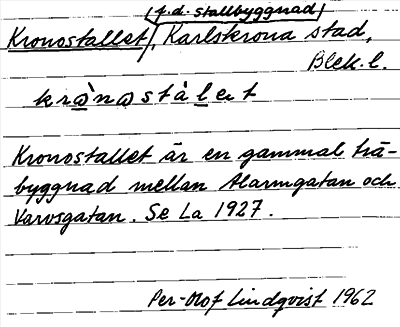 f.d. stallbyggnad
Kronostallet, Karlskrona stad,
Blek. l.
krὼnωstàlet
Kronostallet är en gammal trä-
byggnad mellan Alarmgatan och
Varvsgatan. Se La 1927.
Per-Olof Lindqvist 1962